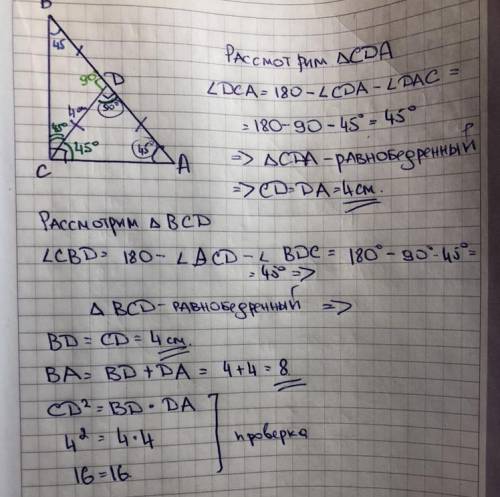 B
45
90
D
90°
4см
45°
45°
45°
C
A
Рассмотрим △CDA
∠DCA = 180 - ∠CDA - ∠DAC =
= 180 - 90 - 45° = 45°
=> △CDA - равнобедренный
=> CD = DA = 4 см.
Рассмотрим △BCD
∠CBD = 180 - ∠ACD - ∠ BDC = 180° - 90° - 45° =
= 45° =>
△ BCD - равнобедренный =>
BD = CD = 4 см.
BA = BD + DA = 4 + 4 = 8
CD² = BD · DA
4² = 4 · 4
проверка
16 = 16